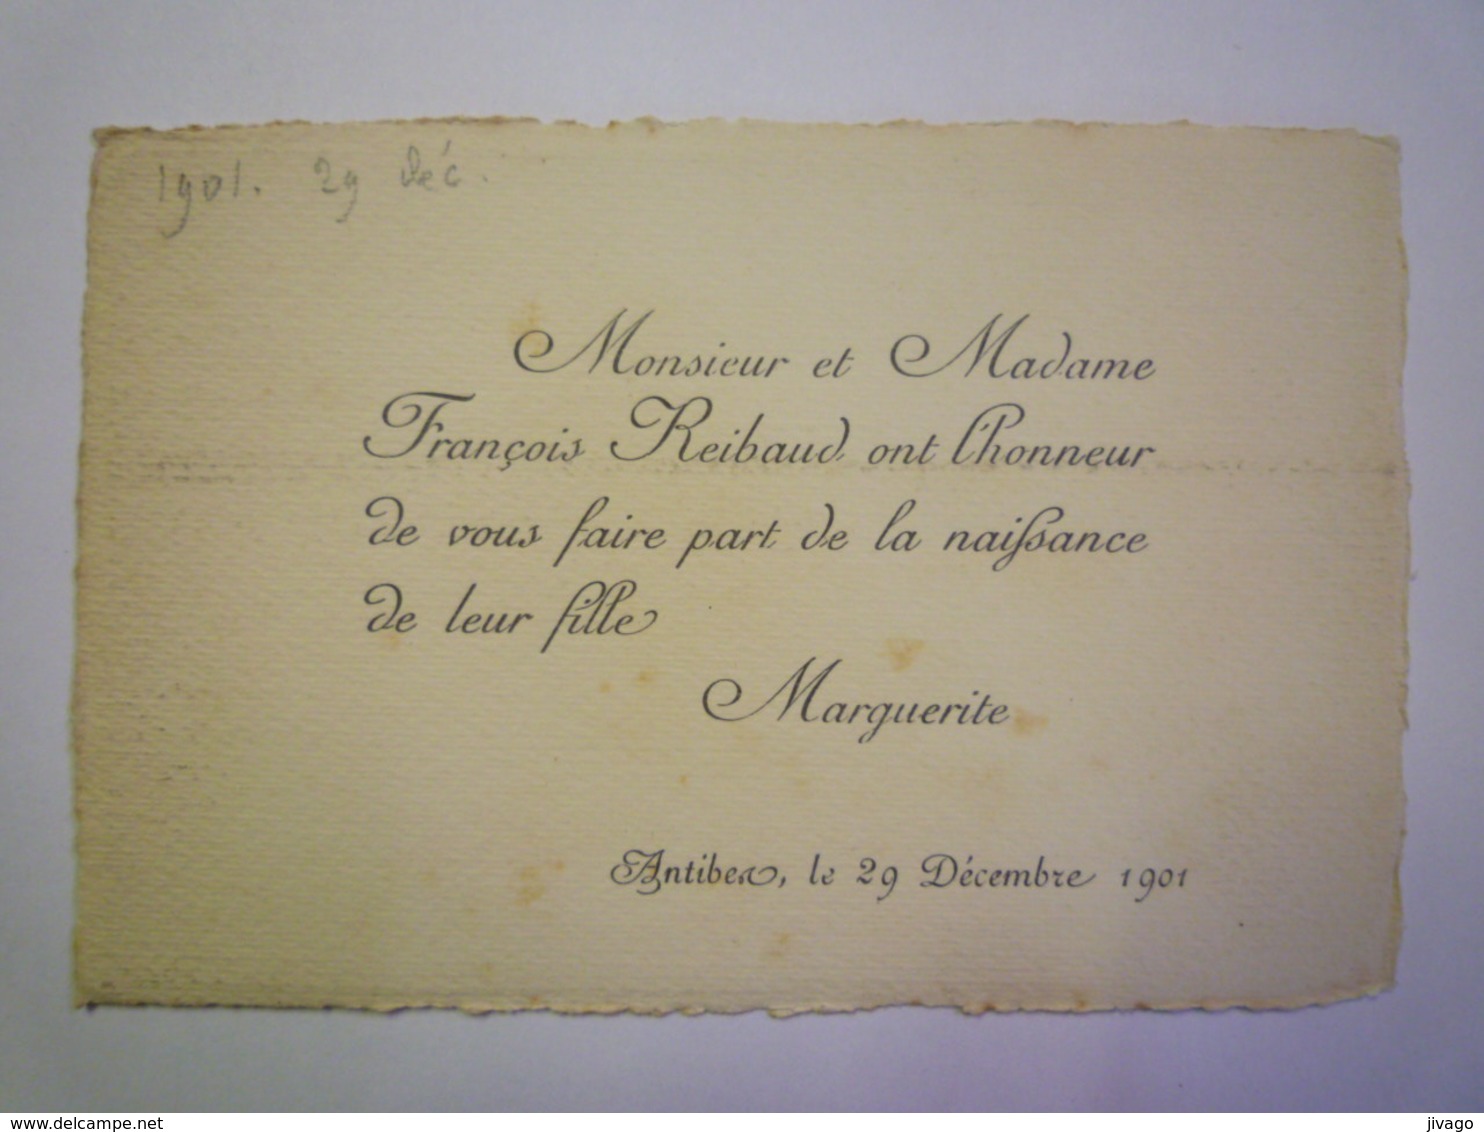 1901. 29 Déc.
Monsieur et Madame
François Reibaud ont l'honneur
de vous faire part de la naissance
de leur fille
Marguerite
Antibes, le 29 Décembre 1901
www.delcampe.net
jivago